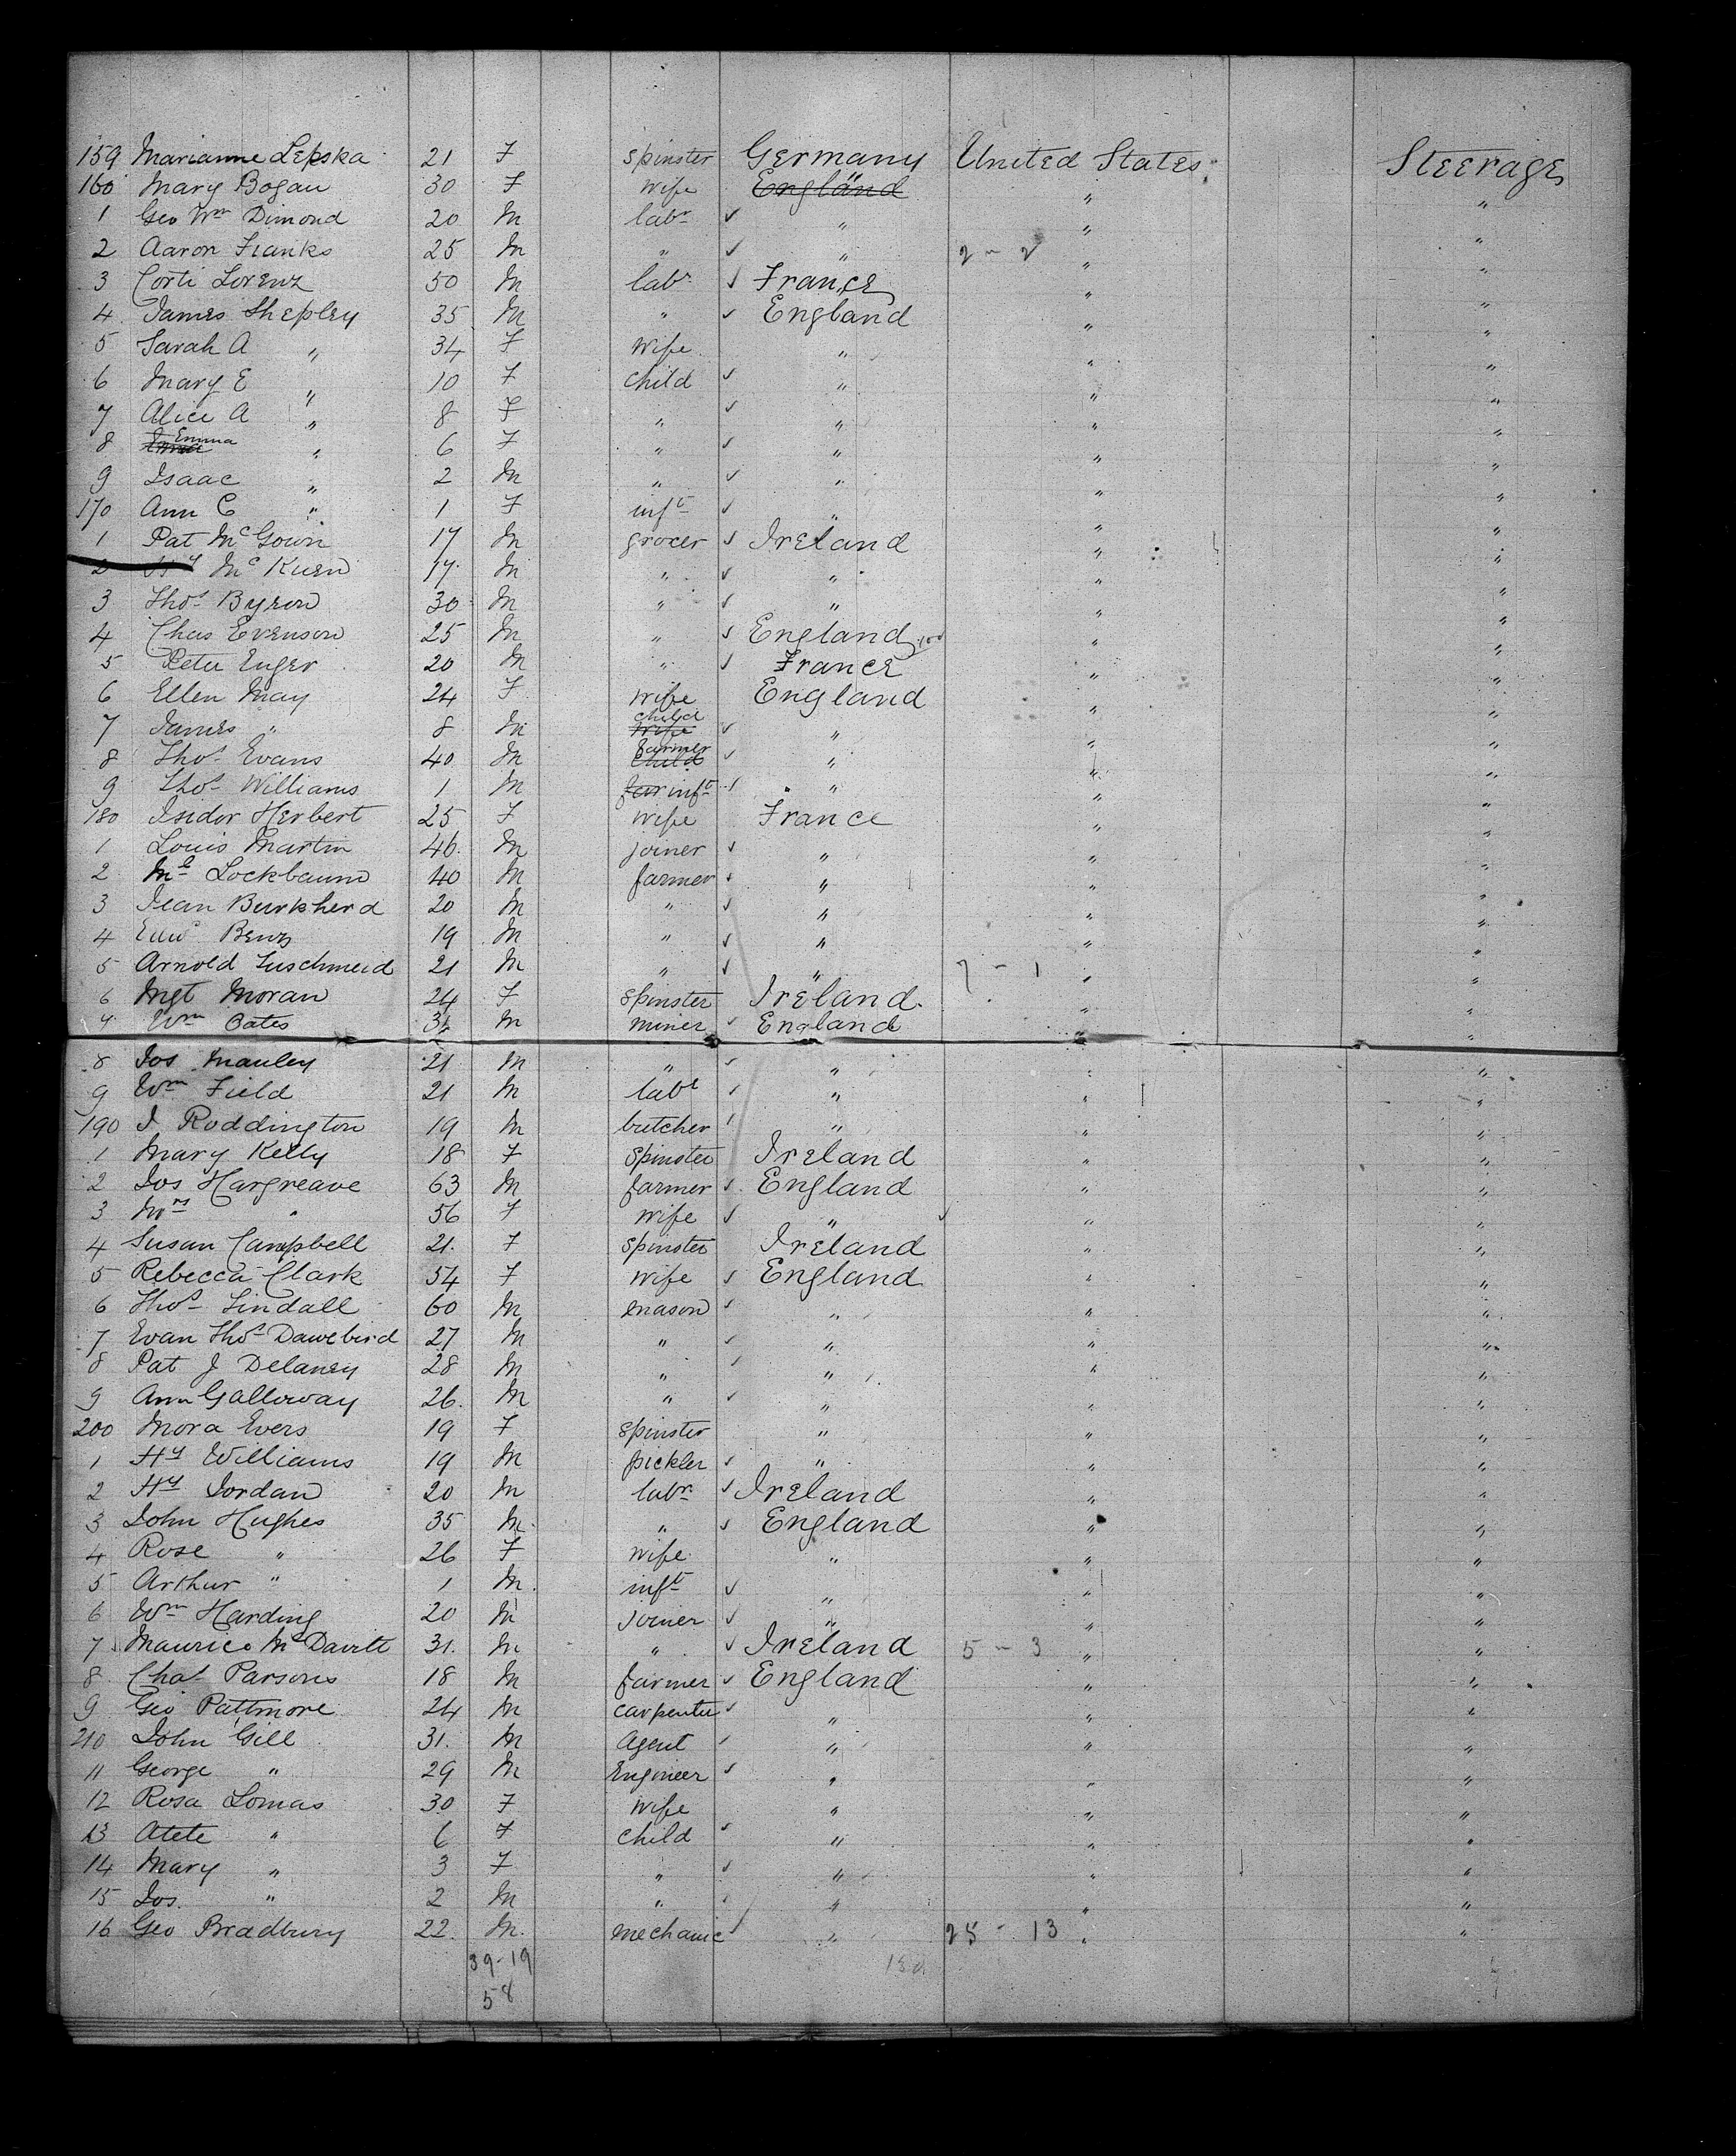 159 Marianne Lepska 21 F spinster Germany United States Steerage
160 Mary Bogan 30 F wife England " "
1 Geo Wm Dimond 20 M labr " " "
2 Aaron Franks 25 M " " 2 - 2 " "
3 Corti Lorenz 50 M labr France " "
4 James Shepley 35 M " England " "
5 Sarah A " 34 F wife " " "
6 Mary E " 10 F child " " "
7 Alice A " 8 F " " " "
8 Emma " 6 F " " " "
9 Isaac " 2 M " " " "
170 Ann C " 1 F inft " " "
1 Pat McGown 17 M grocer Ireland " "
2 Hy McKuen 17 M " " " "
3 Thos Byron 30 M " " " "
4 Chas Evenson 25 M " England " "
5 Peter Enger 20 M " France " "
6 Ellen May 24 F wife England " "
7 James " 8 M wife child " " "
8 Thos Evans 40 M child farmer " " "
9 Thos Williams 1 M far inft " " "
180 Isidor Herbert 25 F wife France " "
1 Louis Martin 46 M joiner " " "
2 Lockbaum 40 M farmer " " "
3 Jean Burkherd 20 M " " " "
4 Edwd Benz 19 M " " " "
5 Arnold Luschmeid 21 M " " 7 - 1 " "
6 Mgt Moran 24 F spinster Ireland " "
7 Wm Oates 32 M miner England " "
8 Jos Manley 21 M " " " "
9 Wm Field 21 M labr " " "
190 J Roddington 19 M butcher " " "
1 Mary Kelly 18 F spinster Ireland " "
2 Jos Hargreave 63 M farmer England " "
3 Mrs " 56 F wife " " "
4 Susan Campbell 21 F spinster Ireland " "
5 Rebecca Clark 54 F wife England " "
6 Thos Lindall 60 M mason " " "
7 Evan Thos Dawebird 27 M " " " "
8 Pat J Delaney 28 M " " " "
9 Ann Galloway 26 M " " " "
200 Mora Evers 19 F spinster " " "
1 Hy Williams 19 M pickler " " "
2 Hy Jordan 20 M labr Ireland " "
3 John Hughes 35 M " England " "
4 Rose " 26 F wife " " "
5 Arthur " 1 M inft " " "
6 Wm Harding 20 M joiner " " "
7 Maurice McDavitt 31 M " Ireland 5 - 3 " "
8 Chas Parsons 18 M farmer England " "
9 Geo Pattmore 24 M carpenter " " "
210 John Gill 31 M Agent " " "
11 George " 29 M Engineer " " "
12 Rosa Lomas 30 F wife " " "
13 Atete " 6 F child " " "
14 Mary " 3 F " " " "
15 Jos " 2 M " " " "
16 Geo Bradbury 22 M mechanic " 25 - 13 " "
39-19
58